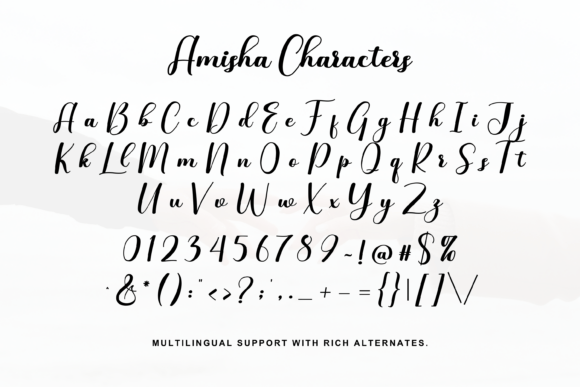 Amisha Characters
A a B b C c D d E e F f G g H h I i J j
K k L l M m N n O o P p Q q R r S s T t
U u V v W w X x Y y Z z
0123456789~!@#$%
`&*():"<>?;',._+-={}|[]\/
MULTILINGUAL SUPPORT WITH RICH ALTERNATES.